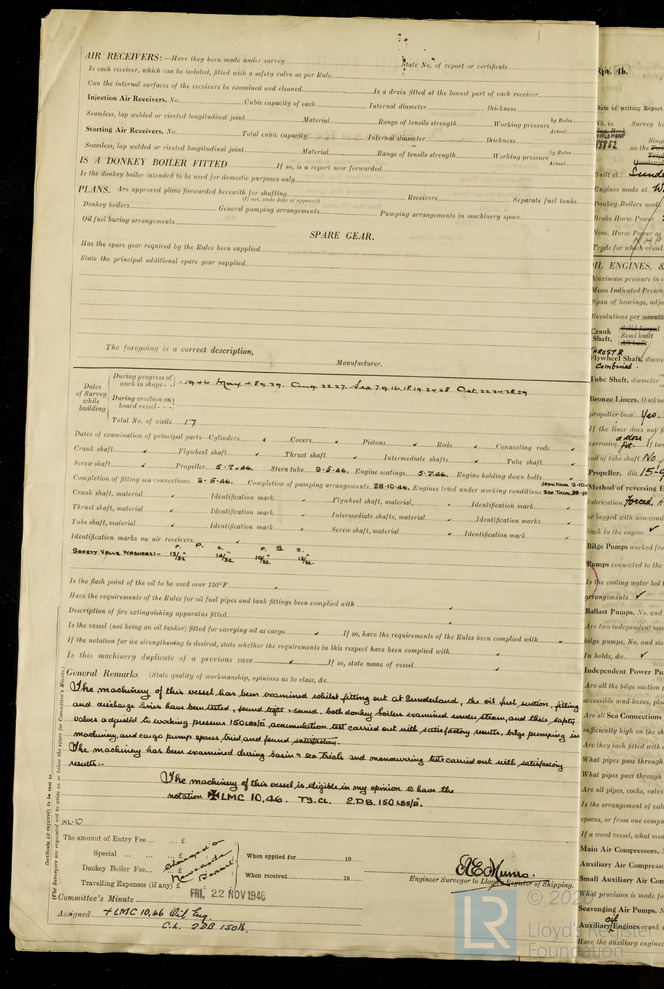 AIR RECEIVERS:—Have they been made under survey State No. of report or certificate
Is each receiver, which can be isolated, fitted with a safety valve as per Rule
Can the internal surfaces of the receivers be examined and cleaned Is a drain fitted at the lowest part of each receiver
Injection Air Receivers, No. Cubic capacity of each Internal diameter thickness
Seamless, lap welded or riveted longitudinal joint Material Range of tensile strength Working pressure by Rules Actual
Starting Air Receivers, No. Total cubic capacity Internal diameter thickness
Seamless, lap welded or riveted longitudinal joint Material Range of tensile strength Working pressure by Rules Actual
IS A DONKEY BOILER FITTED If so, is a report now forwarded
Is the donkey boiler intended to be used for domestic purposes only
PLANS. Are approved plans forwarded herewith for shafting Receivers Separate fuel tanks
(If not, state date of approval)
Donkey boilers General pumping arrangements Pumping arrangements in machinery space
Oil fuel burning arrangements
SPARE GEAR.
Has the spare gear required by the Rules been supplied
State the principal additional spare gear supplied
The foregoing is a correct description,
Manufacturer.
Dates of Survey while building
During progress of work in shops - - 1946 May 4.8.9.29. Aug. 22.27. Sep. 7.9.16.18.19.24.28 Oct. 22.24.28.29
During erection on board vessel - - -
Total No. of visits 17
Dates of examination of principal parts—Cylinders Covers Pistons Rods Connecting rods
Crank shaft Flywheel shaft Thrust shaft Intermediate shafts Tube shaft
Screw shaft Propeller 5-7-46. Stern tube 9-5-46. Engine seatings 5-7-46. Engine holding down bolts
Completion of fitting sea connections 9-5-46. Completion of pumping arrangements 28-10-46. Engines tried under working conditions
Crank shaft, material Identification mark Flywheel shaft, material, Identification mark
Thrust shaft, material Identification mark Intermediate shafts, material Identification marks
Tube shaft, material Identification mark Screw shaft, material Identification mark
Identification marks on air receivers
P. P. S. P. S. S.
SAFETY VALVE WASHERS:-
Is the flash point of the oil to be used over 150°F
Have the requirements of the Rules for oil fuel pipes and tank fittings been complied with
Description of fire extinguishing apparatus fitted
Is the vessel (not being an oil tanker) fitted for carrying oil as cargo If so, have the requirements of the Rules been complied with
If the notation for ice strengthening is desired, state whether the requirements in this respect have been complied with
Is this machinery duplicate of a previous case If so, state name of vessel
General Remarks (State quality of workmanship, opinions as to class, &c.
The machinery of this vessel has been examined whilst fitting out at Sunderland, the oil fuel suction, fitting
and discharge lines have been tested, found tight & sound, both donkey boilers examined under steam, and their safety
valves adjusted to working pressure 150 LBS/□", accumulation test carried out with satisfactory results, bilge pumping in
machinery, and cargo pump spaces, tried and found satisfactory.
The machinery has been examined during basin & sea trials and manoeuvring tests carried out with satisfactory
results.-
The machinery of this vessel is eligible in my opinion to have the
notation ✠ LMC 10,46. TS.CL. 2.DB. 150 LBS/□".
The amount of Entry Fee ... ... £
Special ... ... £
Donkey Boiler Fee... ... £
Travelling Expenses (if any) £
When applied for 19
When received 19
Engineer Surveyor to Lloyd's Register of Shipping.
Committee's Minute FRI. 22 NOV 1946
Assigned + LMC 10,46 Oil Eng.
C.L. 2DB 150 lb.
Certificate (if required) to be sent to
(The Surveyors are requested not to write on or below the space for Committee's Minute)
Rpt. 4b.
Date of writing Report
No. in Survey
Built at Sund
Engines made at
Donkey Boilers made
Brake Horse Power
Nom. Horse Power as
Trade for which vessel
OIL ENGINES, &
Maximum pressure in
Mean Indicated Pressu
Span of bearings, adja
Revolutions per minute
Crank Shaft,
Solid forged
Semi built
All built
THRUST &
Flywheel Shaft, di
Combined.
Tube Shaft, diameter
Bronze Liners, thickne
propeller boss Yes.
If the liner does not f
end of tube shaft No
Propeller, dia
Method of reversing E
lubrication Forced.
back to the engine ✓
Bilge Pumps worked fro
Pumps connected to the
Is the cooling water led
arrangements ✓
Ballast Pumps, No. and
Are two independent
bilge pumps, No. and si
In holds, &c. ✓
Independent Power Pu
Are all the bilge suction
accessible mud-boxes, pla
Are all Sea Connections
sufficiently high on the s
Are they each fitted with
What pipes pass through
What pipes pass through
Are all pipes, cocks, valve
Is the arrangement of val
spaces, or from one compa
If a wood vessel, what me
Main Air Compressors, N
Auxiliary Air Compresso
Small Auxiliary Air Comp
What provision is made for
Scavenging Air Pumps, N
Auxiliary Oil Engines crank
Have the auxiliary engines
LR
Lloyd's Register
Foundation